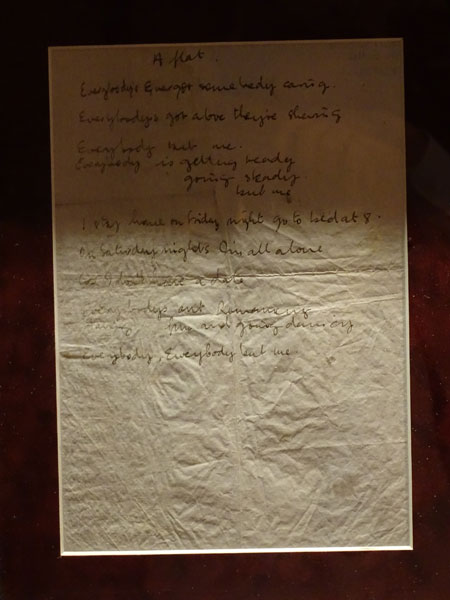 A flat.
Everybodys got somebody caring
Everybodys got a love they're sharing
Everybody but me.
Everybody is getting ready
going steady
but me
I stay home on friday night go to bed at 8.
On Saturday nights Im all alone
Cos I dont have a date
Everybodys out Romancing
and going dancing
Everybody, Everybody but me